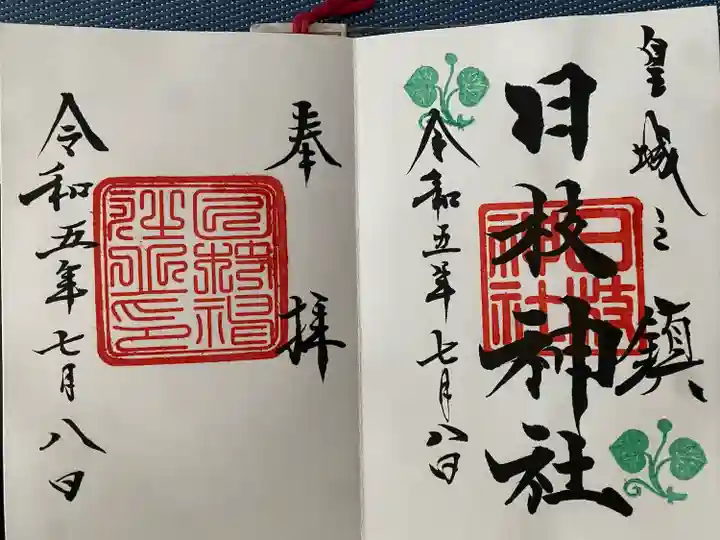 皇城之鎮
日枝神社
日枝
神社
令和五年七月八日
奉拝
令和五年七月八日